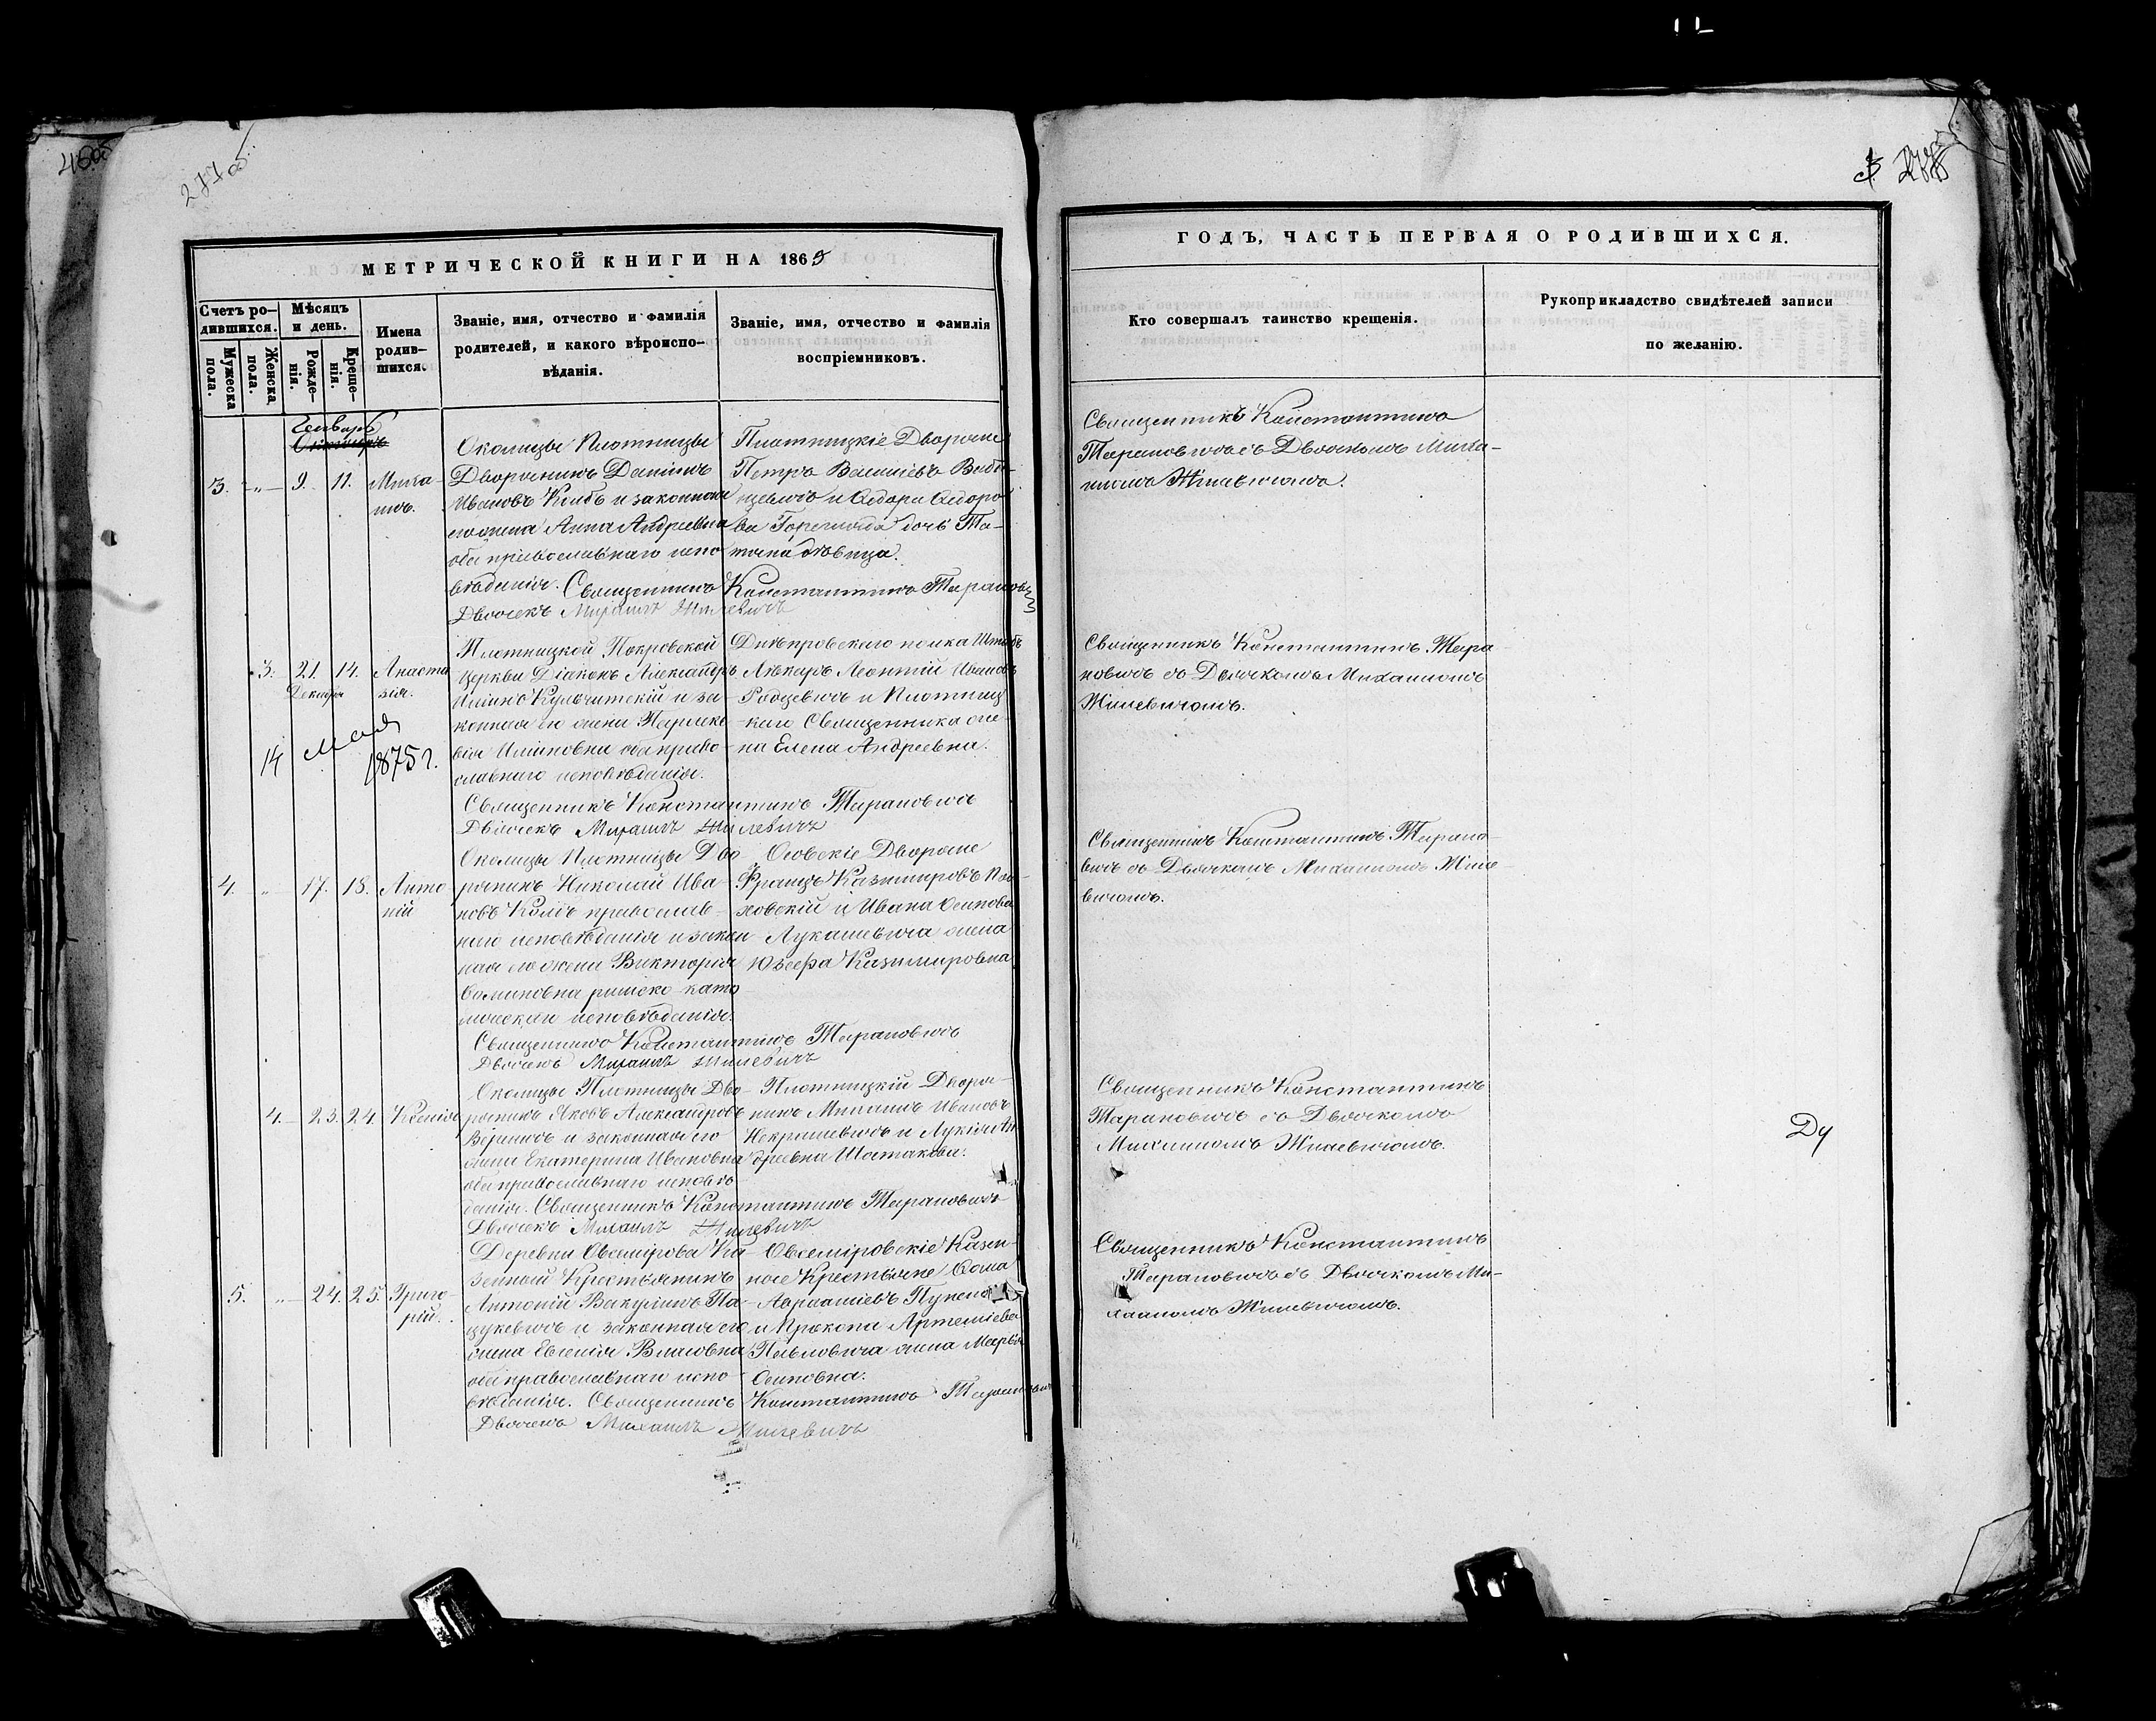 277 об.
МЕТРИЧЕСКОЙ КНИГИ НА 1865
Счетъ ро-
дившихся.
Мужеска
пола.
Женска
пола.
Мѣсяцъ
и день.
Рожде-
нія.
Креще-
нія.
Имена
родив-
шихся.
Званіе, имя, отчество и фамилія
родителей, и какого вѣроиспо-
вѣданія.
Званіе, имя, отчество и фамилія
воспріемниковъ.
Генварь
3. „ 9. 11. Миха-
илъ.
Околицы Плотницы
Дворянинъ
Ивановъ Колбъ и законная
его жена Анна Андреевна
оба православнаго испо
вѣданія. Священникъ Константинъ Таранович
Дьячекъ Михаилъ Жилевичъ
Плотницкіе Дворяне
Петръ
и Ѳедора Ѳедоро
ва дочь Та-
тіана дѣвица.
3. 21. 14. Анаста
зія.
Декабря
14 мая
1875 г.
Плотницкой Покровской
церкви Діаконъ Александръ
Ильинъ Кульчитскій и за-
конная его жена Параске-
вія оба право-
славнаго исповѣданія.
Священникъ Константинъ Тарановичъ
Дьячекъ Михаилъ Жилевичъ
Днѣпровскаго полка Штабъ
Лѣкарь Леонтій Ивановъ
Родзевичъ и Плотниц
-каго Священника же-
на Елена Андреевна.
4. „ 17. 18. Анто
ній
Околицы Плотницы Дво
рянинъ Николай Ива-
новъ Колбъ православ-
наго исповѣданія и закон
ная его жена Викторія
римско-като
лическаго исповѣданія.
Священникъ Константинъ Тарановичъ
Дьячекъ Михаилъ Жилевичъ
Осовскіе Дворяне
Францъ Казимировъ
и Ивана Осипова
Лукашевича жена
Юзефа Казимировна
4. 23. 24. Ксенія
Околицы Плотницы Дво-
рянинъ Яковъ Александровъ
и законная его
жена Екатерина Ивановна
оба православнаго исповѣ
данія. Священникъ Константинъ Тарановичъ
Дьячекъ Михаилъ Жилевичъ
Плотницкій Дворя-
нинъ Ивановъ
Некрашевичъ и Лукія Ан
дреевна Шатакова.
5. „ 24. 25. Григо-
рій.
Деревни Овсемірова Ка
зенный Крестьянинъ
Антоній Вакулинъ Па-
цукевичъ и законная его
жена Евгенія Власовна
оба православнаго испо
вѣданія. Священникъ Константинъ Таранович
Дьячекъ Михаилъ Жилевичъ
Овсеміровскіе Казен-
ные Крестьяне Ѳома
и Прокопа Артеміева
Павловича жена Марья
Осиповна.
ГОДЪ, ЧАСТЬ ПЕРВАЯ О РОДИВШИХСЯ.
Кто совершалъ таинство крещенія.
Рукоприкладство свидѣтелей записи
по желанію.
Священникъ Константинъ
Тарановичъ съ Дьячкомъ Миха-
иломъ Жилевичомъ.
Священникъ Константинъ Тара
новичъ съ Дьячкомъ Михаиломъ
Жилевичомъ.
Священникъ Константинъ Тарано-
вичъ съ Дьячкомъ Михаиломъ Жиле-
вичомъ.
Священникъ Константинъ
Тарановичъ съ Дьячкомъ
Михаиломъ Жилевичомъ.
Священникъ Константинъ
Тарановичъ съ Дьячкомъ Ми-
хаиломъ Жилевичомъ.